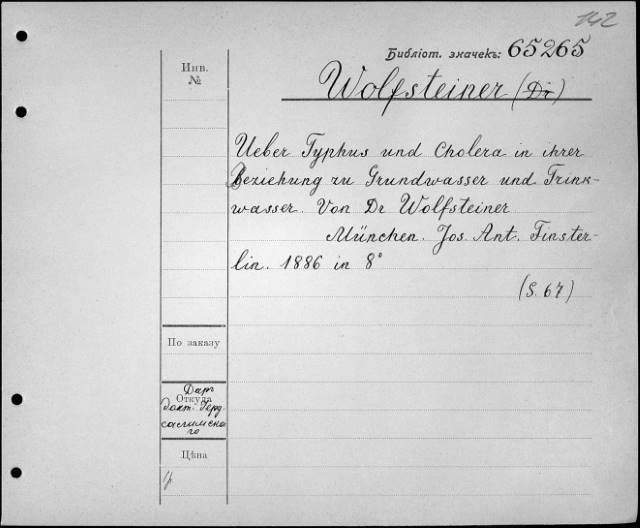 142
Библіот. значекъ: 65265
Инв.
№
Wolfsteiner (Dr)
Ueber Typhus und Cholera in ihrer
Beziehung zu Grundwasser und Trink-
wasser. Von Dr Wolfsteiner
München. Jos. Ant. Finster-
lin. 1886 in 8°
(S. 67)
По заказу
Откуда
Даръ
докт.
го
Цѣна